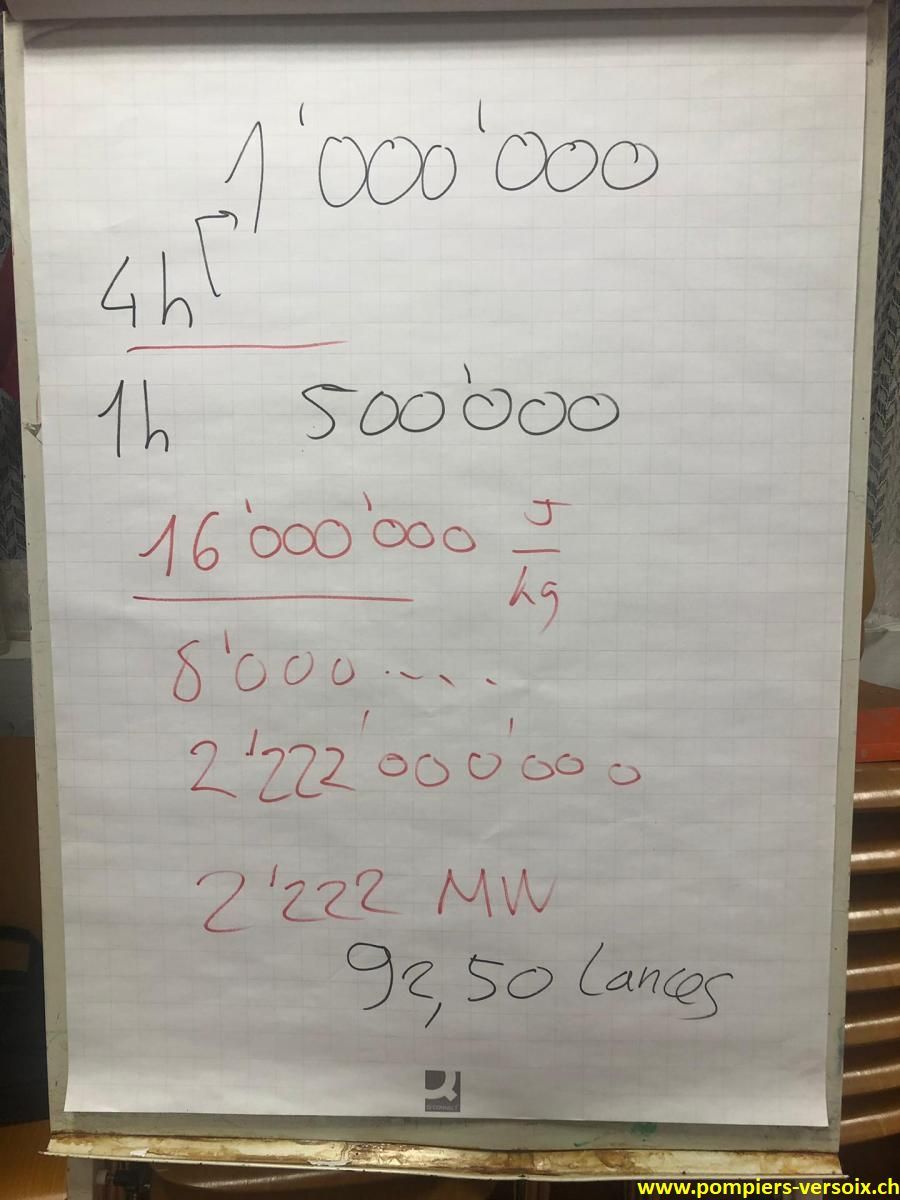 1'000'000
4h
1h 500'000
16'000'000 J/kg
8'000....
2'222'000'000
2'222 MW
92,50 Lances
Q-CONNECT
www.pompiers-versoix.ch